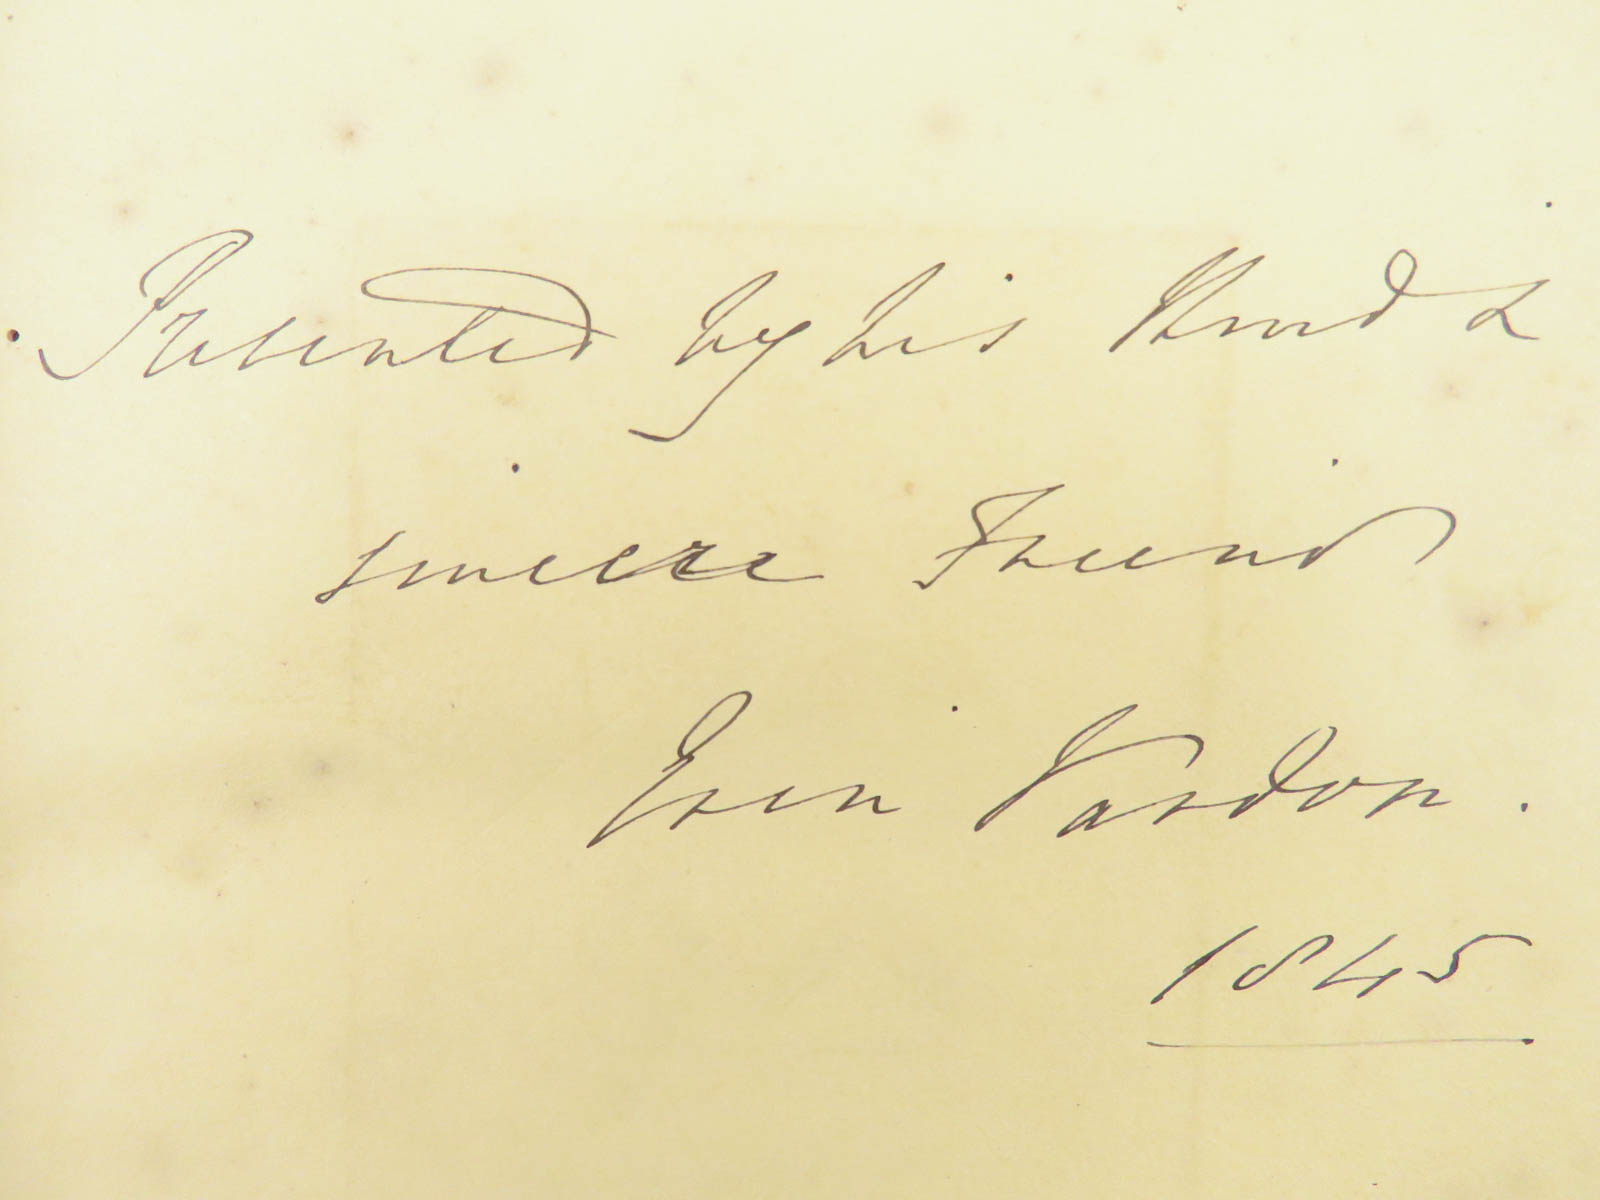 Presented by his kind &
sincere Friend
Even Vardon.
1845